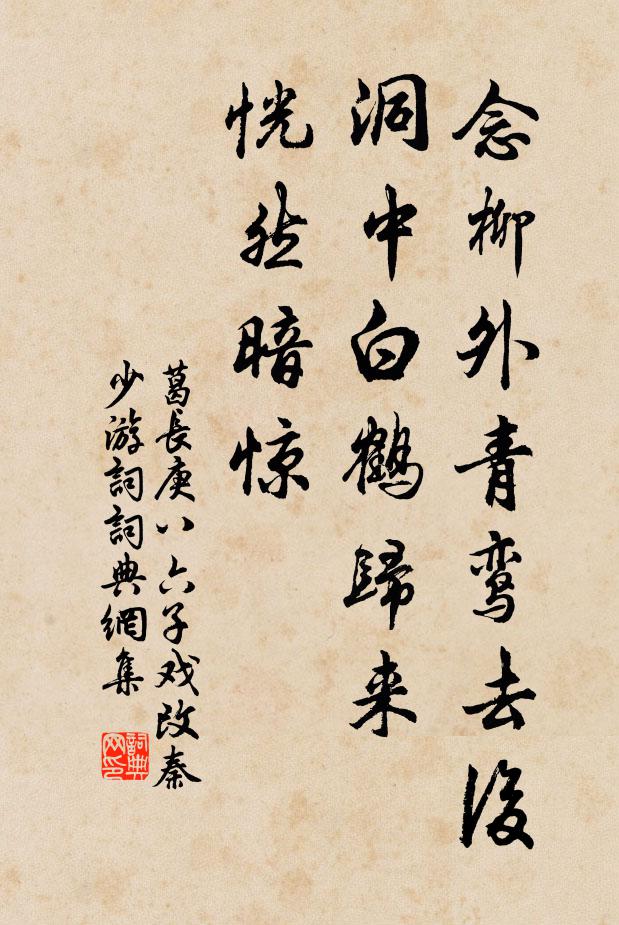 念柳外青鸾去後
洞中白鶴歸来
恍然暗惊
葛長庚八六子戏改秦
少游詞詞典網集
詞典
网印